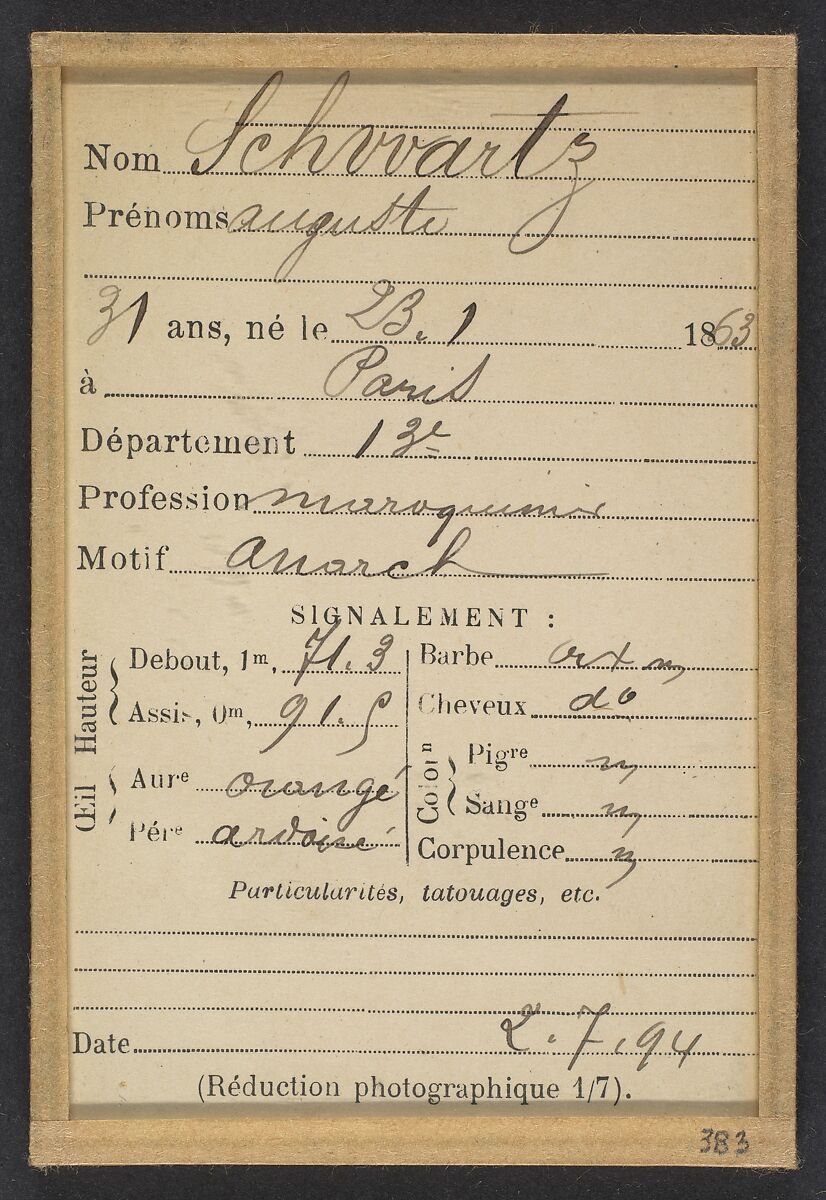 Nom Schwartz
Prénoms auguste
31 ans, né le 23.1 1863
à Paris
Département 13e
Profession maroquinier
Motif anarch
SIGNALEMENT :
Hauteur
Debout, 1m, 71.3
Assis, 0m, 91.5
Œil
Aure orangé
Pére ardoisé
Barbe
Cheveux do
Colon
Pigre m
Sange m
Corpulence m
Particularités, tatouages, etc.
Date 2.7.94
(Réduction photographique 1/7).
383